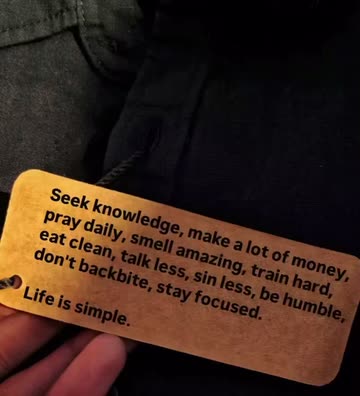 Seek knowledge, make a lot of money,
pray daily, smell amazing, train hard,
eat clean, talk less, sin less, be humble,
don't backbite, stay focused.
Life is simple.